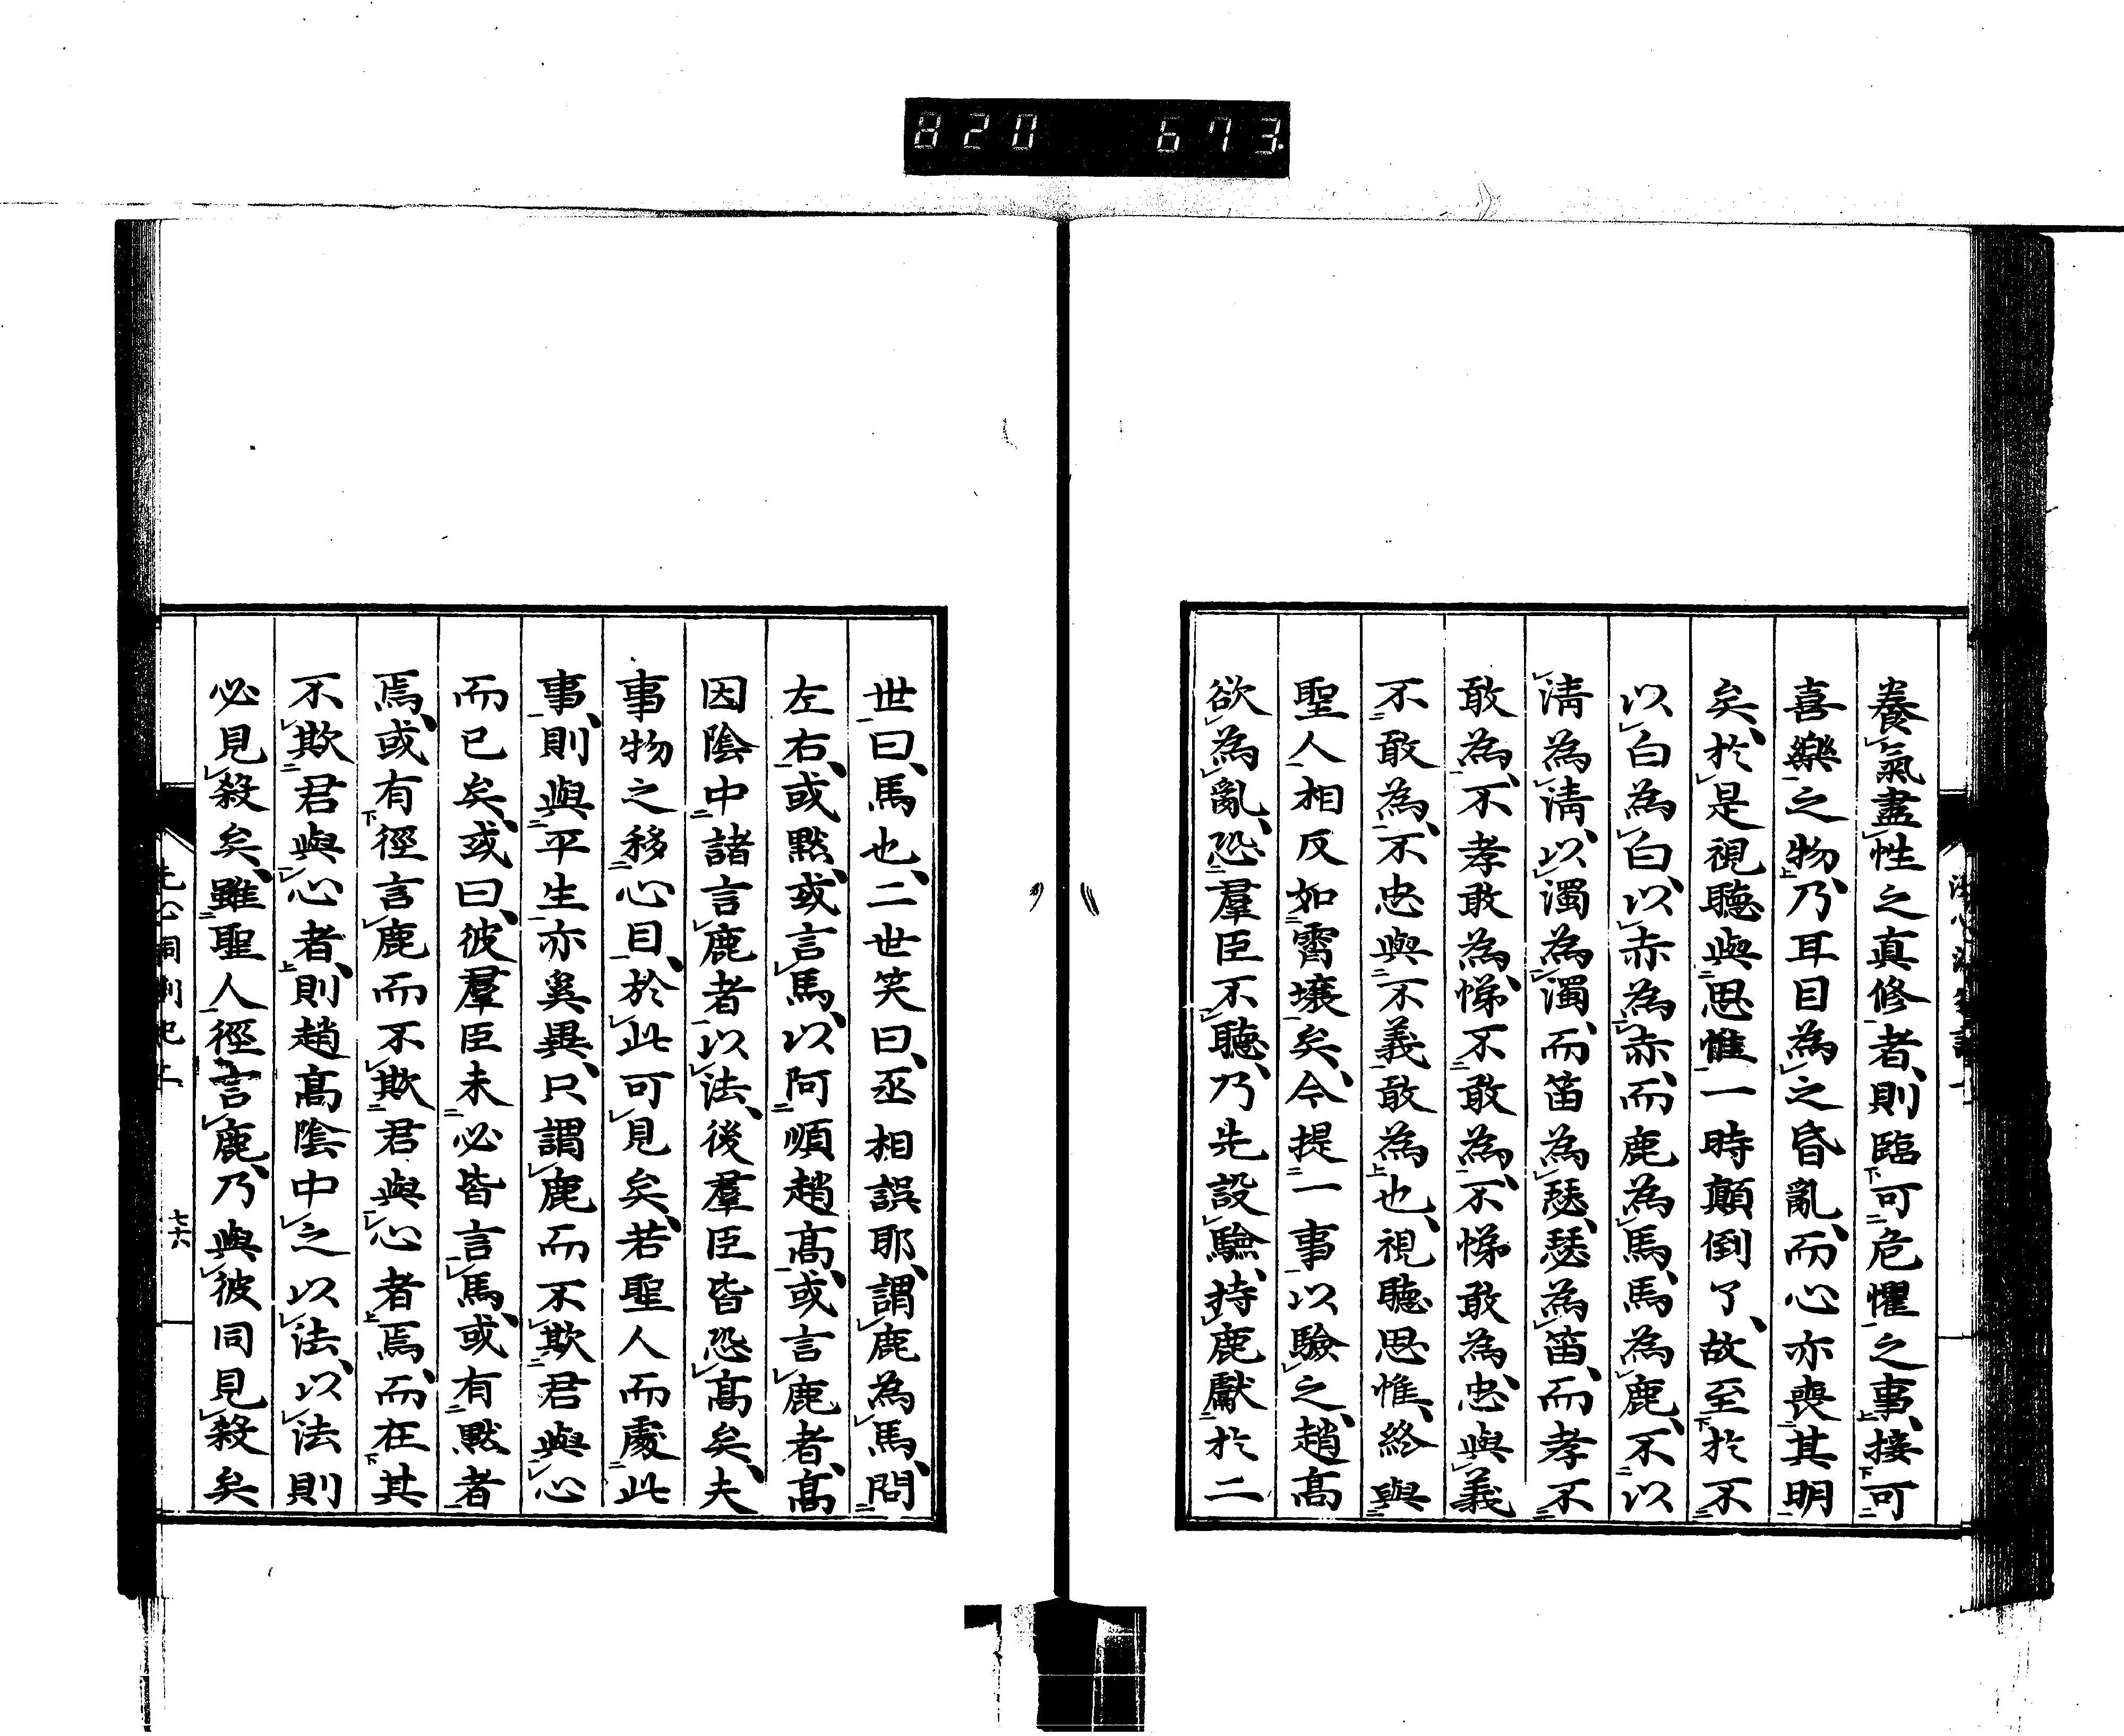 820 673
養氣盡性之真修者、則臨可危懼之事、接可
喜樂之物、乃耳目為之昏亂、而心亦喪其明
矣、於是視聽與思惟一時顛倒了、故至於不
以白為白、以赤為赤、而鹿為馬、馬為鹿、不以
清為清、以濁為濁、而笛為瑟、瑟為笛、而孝不
敢為、不孝敢為、悌不敢為、不悌敢為、忠與義
不敢為、不忠與不義敢為也、視聽思惟、終與
聖人相反如霄壤矣、今提一事以驗之、趙高
欲為亂、恐羣臣不聽、乃先設驗、持鹿獻於二
世曰、馬也、二世笑曰、丞相誤耶、謂鹿為馬、問
左右、或默、或言馬、以阿順趙高、或言鹿者、高
因陰中諸言鹿者以法、後羣臣皆恐高矣、夫
事物之移心目、於此可見矣、若聖人而處此
事、則與平生亦奚異、只謂鹿而不欺君與心
而已矣、或曰、彼羣臣未必皆言馬、或有默者
焉、或有徑言鹿而不欺君與心者焉、而在其
不欺君與心者、則趙高陰中之以法、以法則
必見殺矣、雖聖人徑言鹿、乃與彼同見殺矣
七六